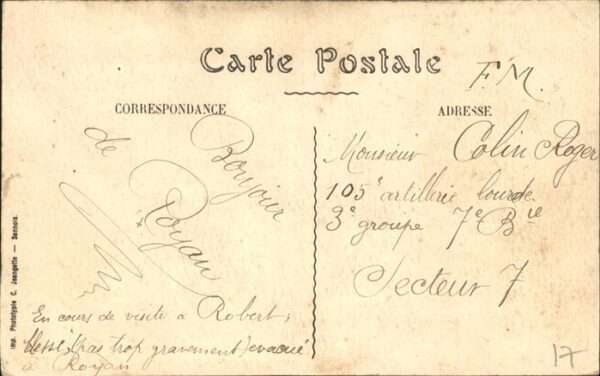 Carte Postale
F.M.
CORRESPONDANCE
ADRESSE
Bonjour
de Royan
En cours de visite à Robert,
blessé (pas trop gravement) évacué
à Royan
Monsieur Colin Roger
105e artillerie lourde
3e groupe 7e Bie
Secteur 7
17
Imp. Phototypie C. Jeangette — Sennois